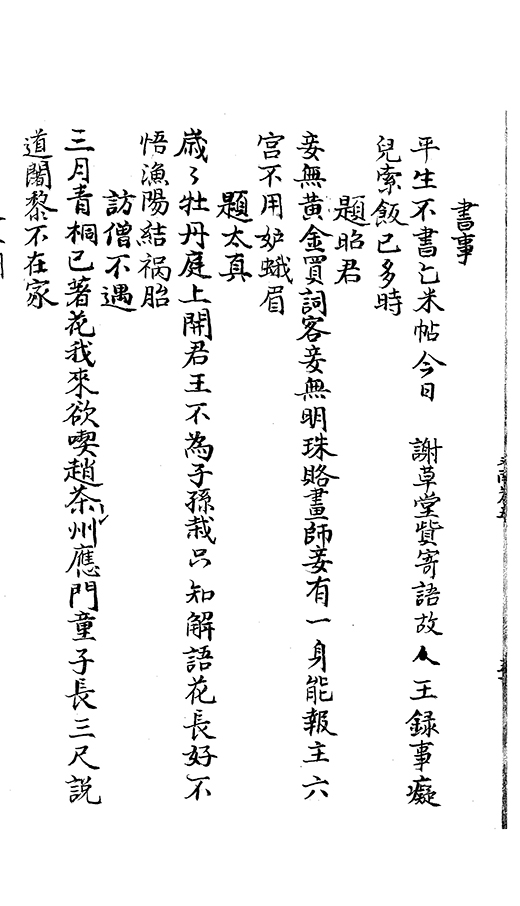 書事
平生不書乞米帖今日　謝草堂貲寄語故人王録事癡
兒索飯已多時
題昭君
妾無黃金買詞客妾無明珠賂畫師妾有一身能報主六
宮不用妒蛾眉
題太真
歲〻牡丹庭上開君王不為子孫栽只知解語花長好不
悟漁陽結禍胎
訪僧不遇
三月青桐已著花我來欲喫趙茶州應門童子長三尺説
道闍黎不在家